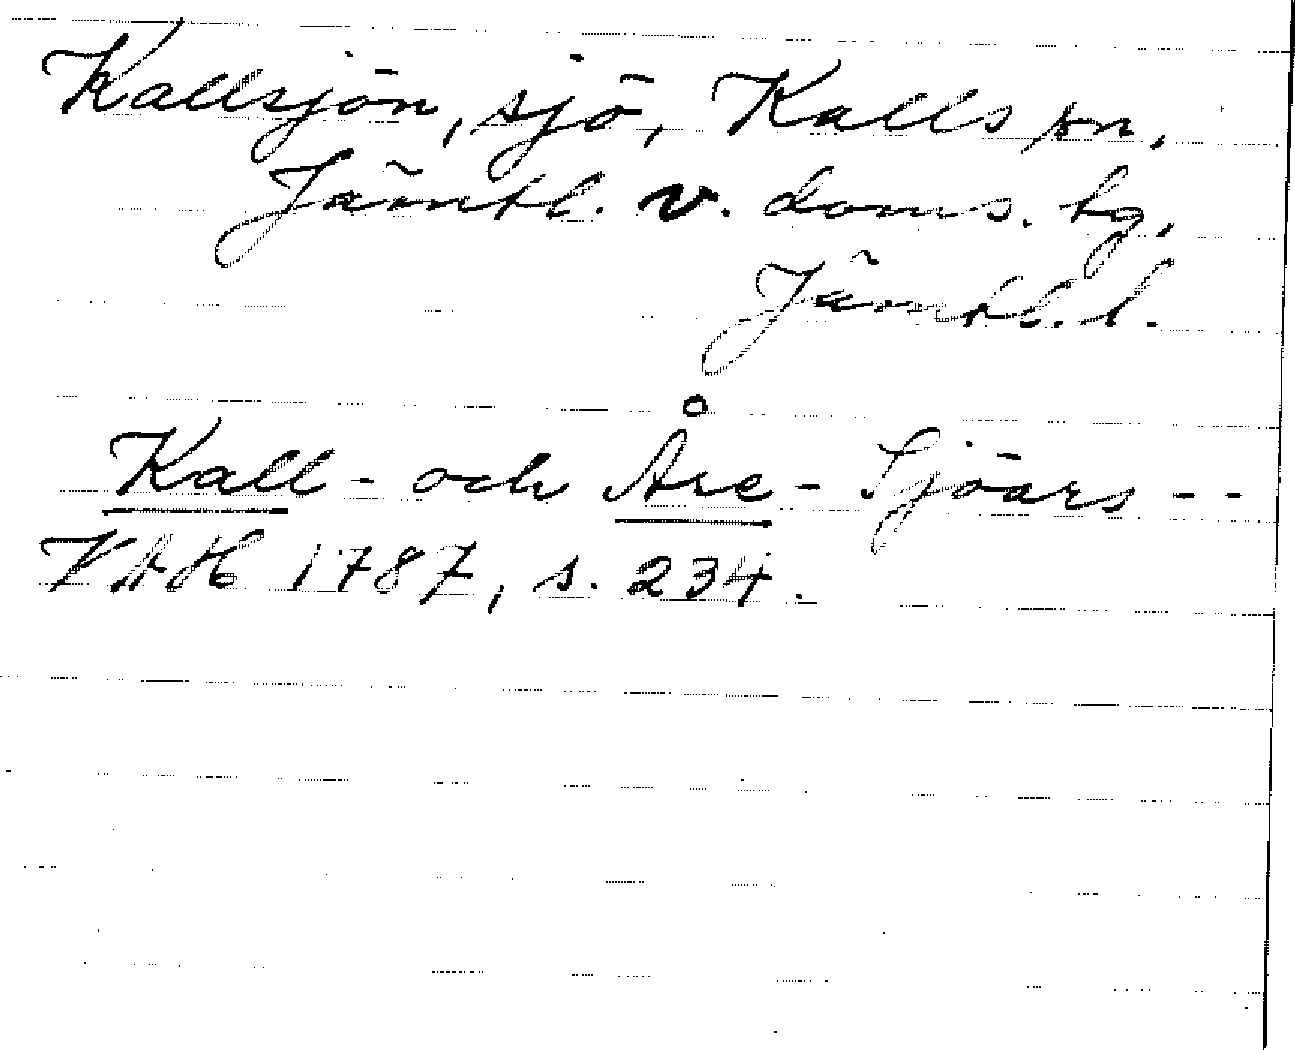 Kallsjön, sjö, Kalls sn,
Jämtl. v. doms. tg,
Jämtl. l.
Kall- och Åre-Sjöars --
VAH 1787, s. 234.